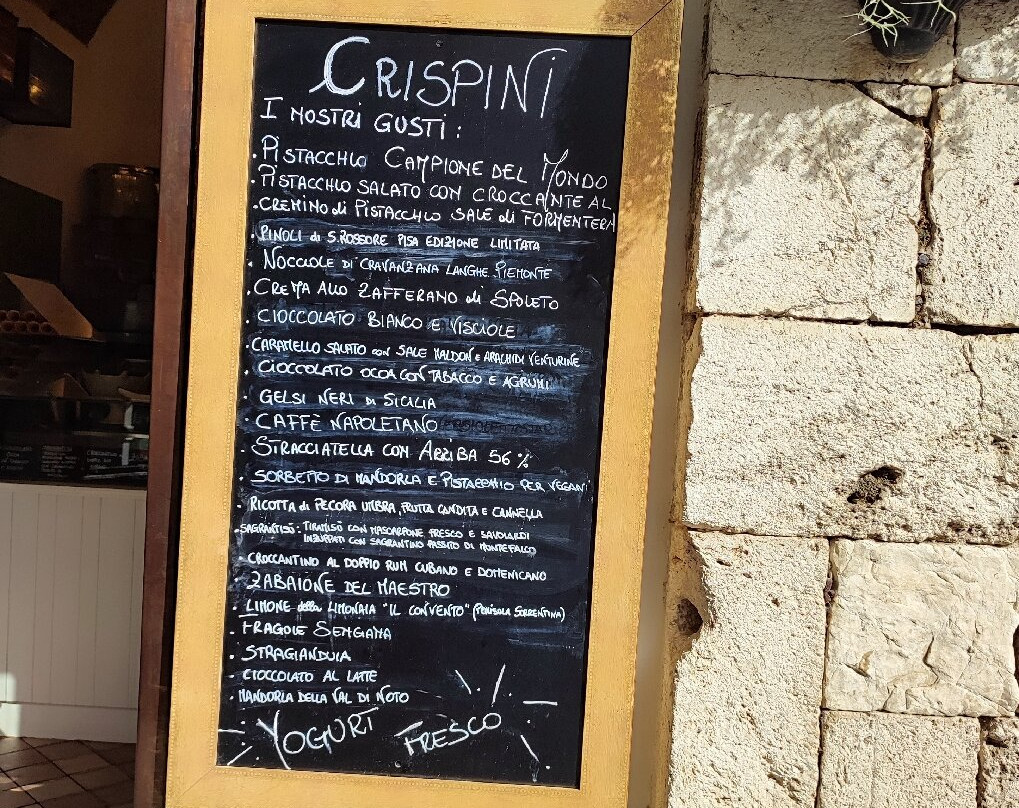 CRISPINI
I NOSTRI GUSTI:
• PISTACCHIO CAMPIONE DEL MONDO
• PISTACCHIO SALATO CON CROCCANTE AL
• CREMINO di PISTACCHIO SALE di FORMENTERA
• PINOLI di S.ROSSORE PISA EDIZIONE LIMITATA
• NOCCIOLE DI CRAVANZANA LANGHE PIEMONTE
• CREMA ALLO ZAFFERANO di SPOLETO
• CIOCCOLATO BIANCO E VISCIOLE
• CARAMELLO SALATO con SALE MALDON e ARACHIDI VENTURINE
• CIOCCOLATO OCOA CON TABACCO E AGRUMI
• GELSI NERI DI SICILIA
• CAFFÈ NAPOLETANO
• STRACCIATELLA CON ARRIBA 56%
• SORBETTO DI MANDORLA E PISTACCHIO PER VEGANI
RICOTTA di PECORA UMBRA, FRUTTA CANDITA E CANNELLA
• SAGRANTISÙ: TIRAMISÙ CON MASCARPONE FRESCO E SAVOIARDI
INZUPPATI CON SAGRANTINO PASSITO DI MONTEFALCO
• CROCCANTINO AL DOPPIO RUM CUBANO E DOMENICANO
• ZABAIONE DEL MAESTRO
• LIMONE della LIMONAIA "IL CONVENTO" (PENISOLA SORRENTINA)
• FRAGOLE SENGANA
• STRAGIANDUIA
• CIOCCOLATO AL LATTE
• MANDORLA DELLA VAL DI NOTO
YOGURT FRESCO